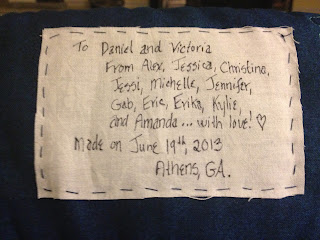 To Daniel and Victoria
From Alex, Jessica, Christina,
Jessi, Michelle, Jennifer,
Gab, Eric, Erika, Kylie,
and Amanda... with love! ♡
Made on June 19th, 2013
Athens, GA.